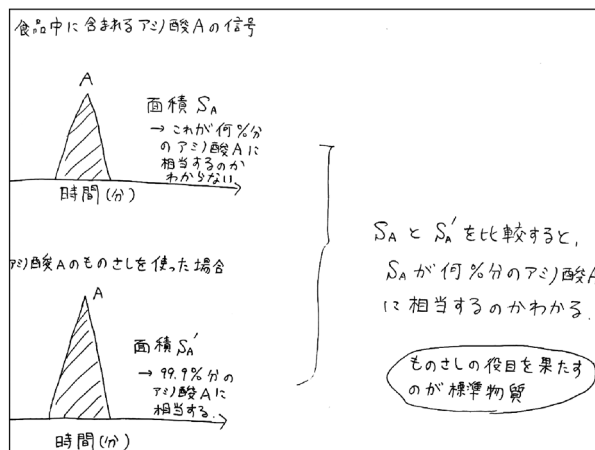 食品中に含まれるアミノ酸Aの信号
A
面積 SA
→ これが何%分
のアミノ酸Aに
相当するのか
わからない.
時間(分)
アミノ酸Aのものさしを使った場合
A
面積 SA'
→ 99.9%分の
アミノ酸Aに
相当する.
時間(分)
SA と SA' を比較すると,
SA が何%分のアミノ酸A
に相当するのかわかる.
ものさしの役目を果たす
のが標準物質